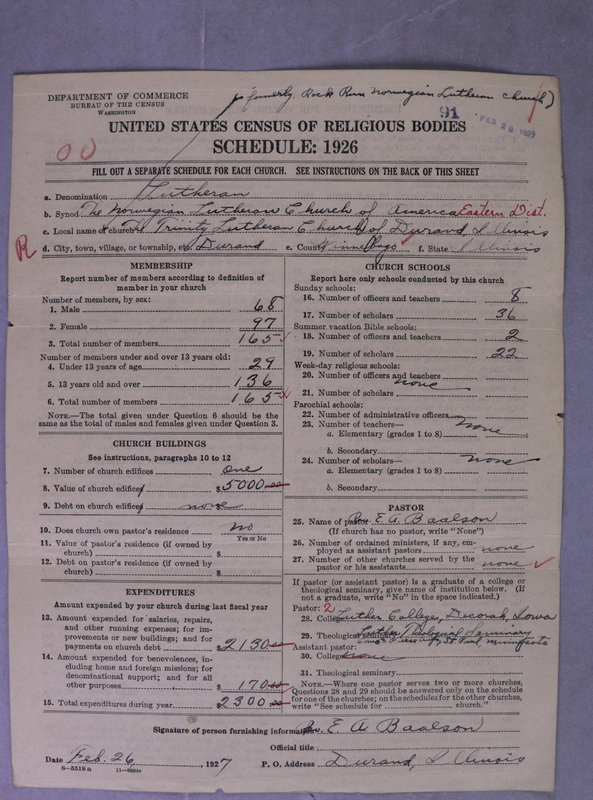 (formerly Rock Run Norwegian Lutheran Church)
DEPARTMENT OF COMMERCE
BUREAU OF THE CENSUS
WASHINGTON
91
FEB 28 1927
UNITED STATES CENSUS OF RELIGIOUS BODIES
SCHEDULE: 1926
FILL OUT A SEPARATE SCHEDULE FOR EACH CHURCH. SEE INSTRUCTIONS ON THE BACK OF THIS SHEET
a. Denomination Lutheran
b. Synod The Norwegian Lutheran Church of America Eastern Dist.
c. Local name of church The Trinity Lutheran Church of Durand, Illinois
R
d. City, town, village, or township, etc. Durand e. County Winnebago f. State Illinois
MEMBERSHIP
Report number of members according to definition of
member in your church
Number of members, by sex:
1. Male 68
2. Female 97
3. Total number of members 165
Number of members under and over 13 years old:
4. Under 13 years of age 29
5. 13 years old and over 136
6. Total number of members 165
NOTE.—The total given under Question 6 should be the
same as the total of males and females given under Question 3.
CHURCH BUILDINGS
See instructions, paragraphs 10 to 12
7. Number of church edifices one
8. Value of church edifices $5000.00
9. Debt on church edifices none
10. Does church own pastor's residence No
Yes or No
11. Value of pastor's residence (if owned by
church) $
12. Debt on pastor's residence (if owned by
church) $
EXPENDITURES
Amount expended by your church during last fiscal year
13. Amount expended for salaries, repairs,
and other running expenses; for im-
provements or new buildings; and for
payments on church debt $2130.00
14. Amount expended for benevolences, in-
cluding home and foreign missions; for
denominational support; and for all
other purposes $170.00
15. Total expenditures during year $2300.00
CHURCH SCHOOLS
Report here only schools conducted by this church
Sunday schools:
16. Number of officers and teachers 8
17. Number of scholars 36
Summer vacation Bible schools:
18. Number of officers and teachers 2
19. Number of scholars 22
Week-day religious schools:
20. Number of officers and teachers
none
21. Number of scholars
Parochial schools:
22. Number of administrative officers
23. Number of teachers— none
a. Elementary (grades 1 to 8)
b. Secondary
24. Number of scholars— none
a. Elementary (grades 1 to 8)
b. Secondary
PASTOR
25. Name of pastor Rev. E. A. Baalson
(If church has no pastor, write "None")
26. Number of ordained ministers, if any, em-
ployed as assistant pastors none
27. Number of other churches served by the
pastor or his assistants none
If pastor (or assistant pastor) is a graduate of a college or
theological seminary, give name of institution below. (If
not a graduate, write "No" in the space indicated.)
Pastor: 2
28. College Luther College, Decorah, Iowa
29. Theological Luther Theological Seminary
St Paul, Minnesota
Assistant pastor:
30. College none
31. Theological seminary
NOTE.—Where one pastor serves two or more churches,
Questions 28 and 29 should be answered only on the schedule
for one of the churches; on the schedules for the other churches,
write "See schedule for church."
Signature of person furnishing information Rev. E. A. Baalson
Official title
Date Feb. 26, 1927 P. O. Address Durand, Illinois
8—5518 a